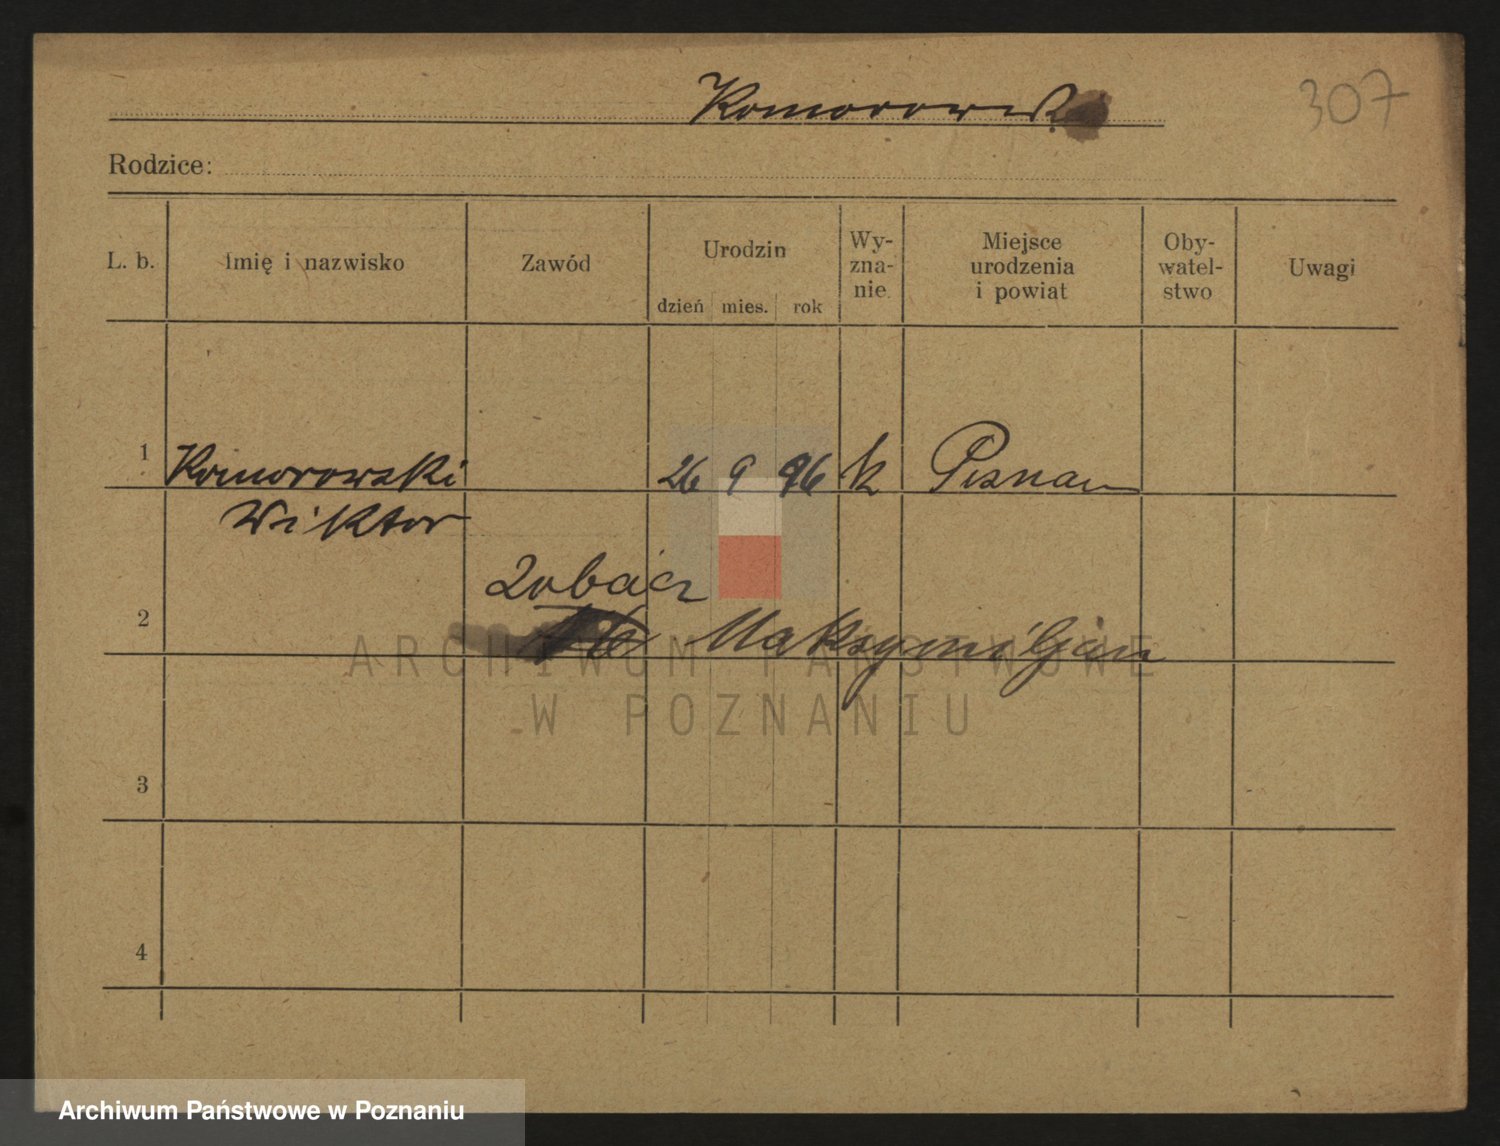 307
Komorowsk
Rodzice:
L. b. Imię i nazwisko Zawód Urodzin dzień mies. rok Wy-zna-nie. Miejsce urodzenia i powiat Oby-watel-stwo Uwagi
1 Komorowski 26 9 96 k Poznan
Wiktor
Zobacz
2 Maksymiljan
ARCHIWUM PAŃSTWOWE
W POZNANIU
3
4
Archiwum Państwowe w Poznaniu